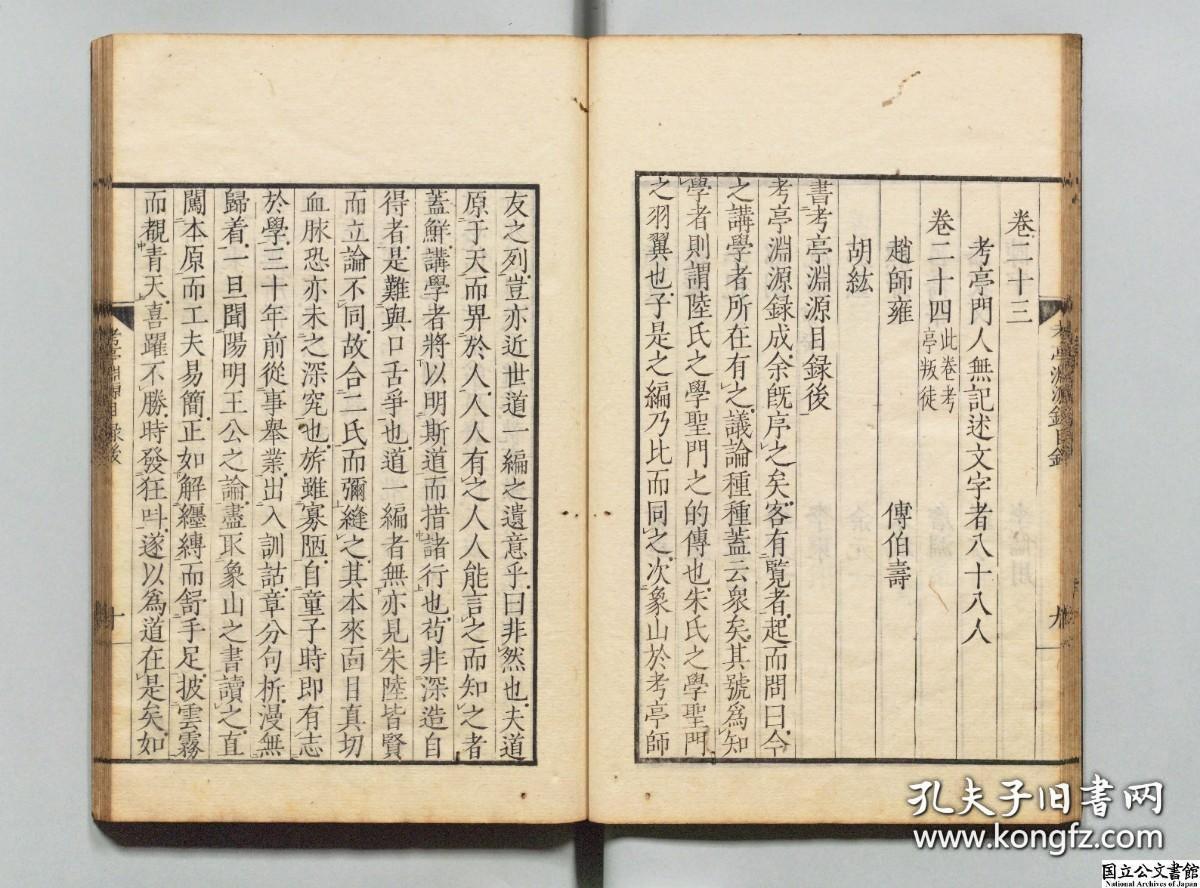 卷二十三
考亭門人無記述文字者八十八人
卷二十四此卷考亭叛徒
趙師雍 傅伯壽
胡紘
書考亭淵源目録後
考亭淵源録成余旣序之矣客有覽者起而問曰今
之講學者所在有之議論種種蓋云衆矣其號爲知
學者則謂陸氏之學聖門之的傳也朱氏之學聖門
之羽翼也子是之編乃比而同之次象山於考亭師
考亭淵源録目録
九
友之列豈亦近世道一編之遺意乎曰非然也夫道
原于天而畀於人人人有之人人能言之而知之者
蓋鮮講學者將以明斯道而措諸行也苟非深造自
得者是難與口舌爭也道一編者無亦見朱陸皆賢
而立論不同故合二氏而彌縫之其本來面目真切
血脉恐亦未之深究也旂雖寡陋自童子時即有志
於學三十年前從事舉業出入訓詁章分句析漫無
歸着一旦聞陽明王公之論盡取象山之書讀之直
闖本原而工夫易簡正如解纏縛而舒手足披雲霧
而覩青天喜躍不勝時發狂呌遂以爲道在是矣如
考亭淵源目録後
十
孔夫子旧书网
www.kongfz.com
国立公文書館
National Archives of Japan